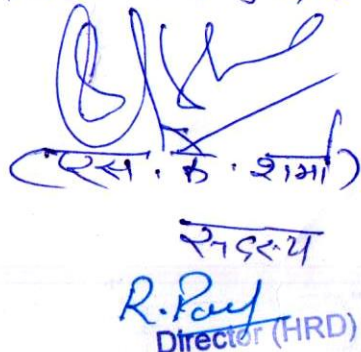 (एस. के. शर्मा)
सदस्य
R. Roy
Director (HRD)